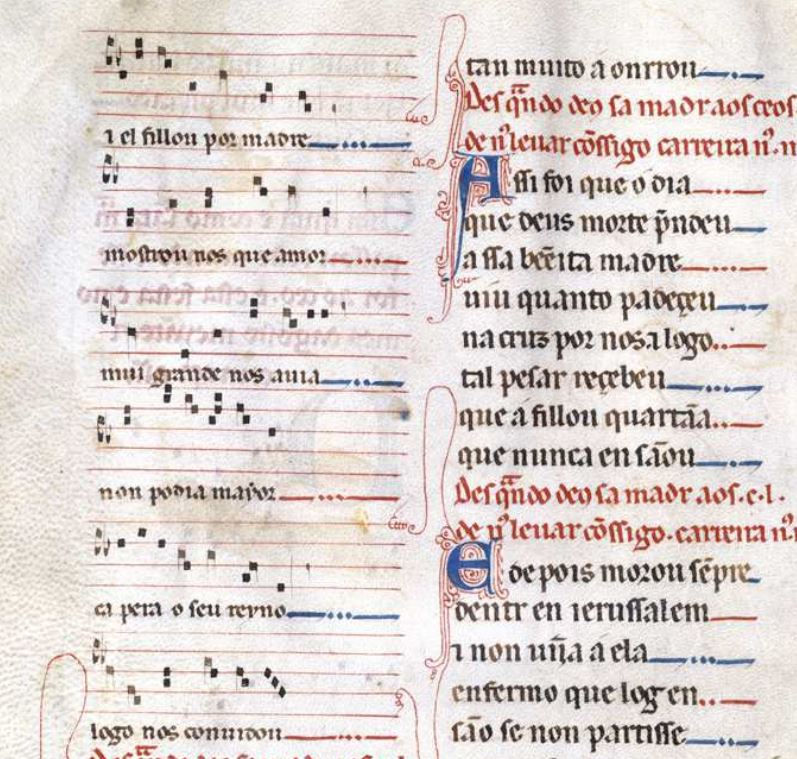 ı el fillou por madre
mostrou nos que amor
mui grande nos auia
non podia mayor
ca pera o seu reyno
logo nos conuidou
tan muito a onrrou
Des qn̄do deꝯ sa madr aos ceos
de nꝰ leuar cōssigo carreira nꝰ
Assi foi que o dia
que deus morte p̄ndeu
a ssa bēeita madre
uiu quanto padeçeu
na cruz por nos ⁊ logo
tal pesar reçebeu
que a fillou quartāa
que nunca en sāou
Des qn̄do deꝯ sa madr aos .c.l.
de nꝰ leuar cōssigo. carreira nꝰ
E depois morou sēpre
dentr en ierussalem
⁊ non uiīa a ela
enfermo que log en
são se non partisse